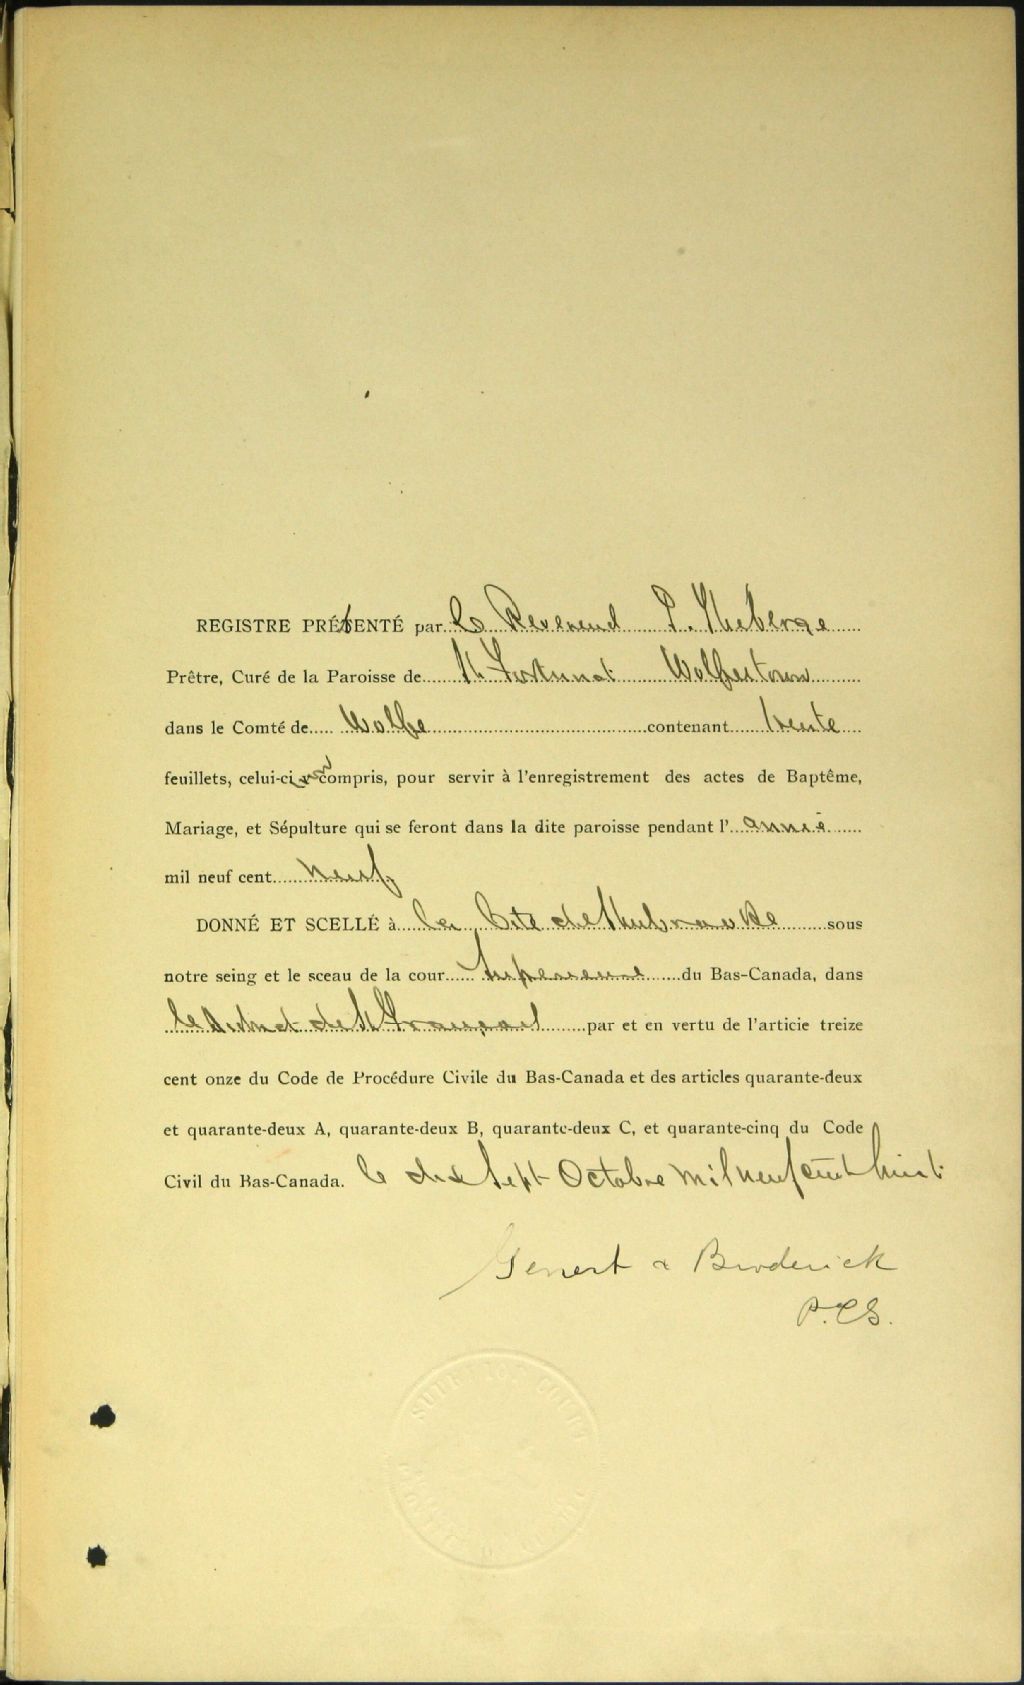 REGISTRE PRÉSENTÉ par le Révérend P. Théberge
Prêtre, Curé de la Paroisse de St Fortunat Wolfestown
dans le Comté de Wolfe contenant trente
feuillets, celui-ci non compris, pour servir à l'enregistrement des actes de Baptême,
Mariage, et Sépulture qui se feront dans la dite paroisse pendant l' année
mil neuf cent neuf
DONNÉ ET SCELLÉ à la Cité de Sherbrooke sous
notre seing et le sceau de la cour Supérieure du Bas-Canada, dans
le District de St François par et en vertu de l'articie treize
cent onze du Code de Procédure Civile du Bas-Canada et des articles quarante-deux
et quarante-deux A, quarante-deux B, quarante-deux C, et quarante-cinq du Code
Civil du Bas-Canada. le dix sept Octobre mil neuf cent huit
& Broderick
P.C.S.
SUPERIOR COURT